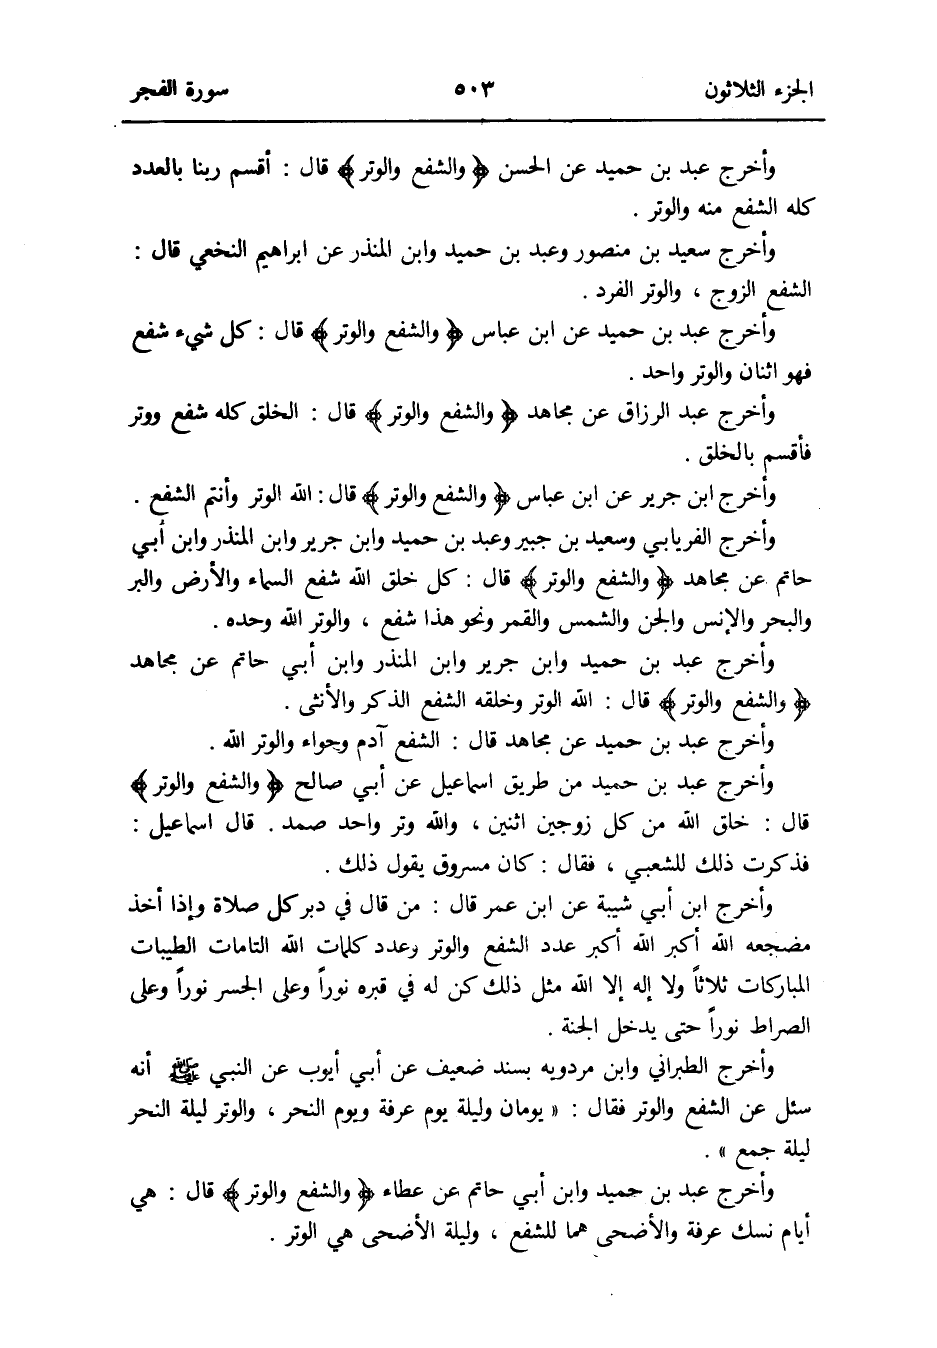 الجزء الثلاثون ٥٠٣ سورة الفجر
وأخرج عبد بن حميد عن الحسن ﴿ والشفع والوتر ﴾ قال : أقسم ربنا بالعدد
كله الشفع منه والوتر .
وأخرج سعيد بن منصور وعبد بن حميد وابن المنذر عن ابراهيم النخعي قال :
الشفع الزوج ، والوتر الفرد .
وأخرج عبد بن حميد عن ابن عباس ﴿ والشفع والوتر ﴾ قال : كل شيء شفع
فهو اثنان والوتر واحد .
وأخرج عبد الرزاق عن مجاهد ﴿ والشفع والوتر ﴾ قال : الخلق كله شفع ووتر
فأقسم بالخلق .
وأخرج ابن جرير عن ابن عباس ﴿ والشفع والوتر ﴾ قال : الله الوتر وأنتم الشفع .
وأخرج الفريابي وسعيد بن جبير وعبد بن حميد وابن جرير وابن المنذر وابن أبي
حاتم عن مجاهد ﴿ والشفع والوتر ﴾ قال : كل خلق الله شفع السماء والأرض والبر
والبحر والإنس والجن والشمس والقمر ونحو هذا شفع ، والوتر الله وحده .
وأخرج عبد بن حميد وابن جرير وابن المنذر وابن أبي حاتم عن مجاهد
﴿ والشفع والوتر ﴾ قال : الله الوتر وخلقه الشفع الذكر والأنثى .
وأخرج عبد بن حميد عن مجاهد قال : الشفع آدم وحواء والوتر الله .
وأخرج عبد بن حميد من طريق اسماعيل عن أبي صالح ﴿ والشفع والوتر ﴾
قال : خلق الله من كل زوجين اثنين ، والله وتر واحد صمد . قال اسماعيل :
فذكرت ذلك للشعبي ، فقال : كان مسروق يقول ذلك .
وأخرج ابن أبي شيبة عن ابن عمر قال : من قال في دبر كل صلاة وإذا أخذ
مضجعه الله أكبر الله أكبر عدد الشفع والوتر وعدد كلمات الله التامات الطيبات
المباركات ثلاثاً ولا إله إلا الله مثل ذلك كن له في قبره نوراً وعلى الجسر نوراً وعلى
الصراط نوراً حتى يدخل الجنة .
وأخرج الطبراني وابن مردويه بسند ضعيف عن أبي أيوب عن النبي ﷺ أنه
سئل عن الشفع والوتر فقال : « يومان وليلة يوم عرفة ويوم النحر ، والوتر ليلة النحر
ليلة جمع » .
وأخرج عبد بن حميد وابن أبي حاتم عن عطاء ﴿ والشفع والوتر ﴾ قال : هي
أيام نسك عرفة والأضحى هما للشفع ، وليلة الأضحى هي الوتر .